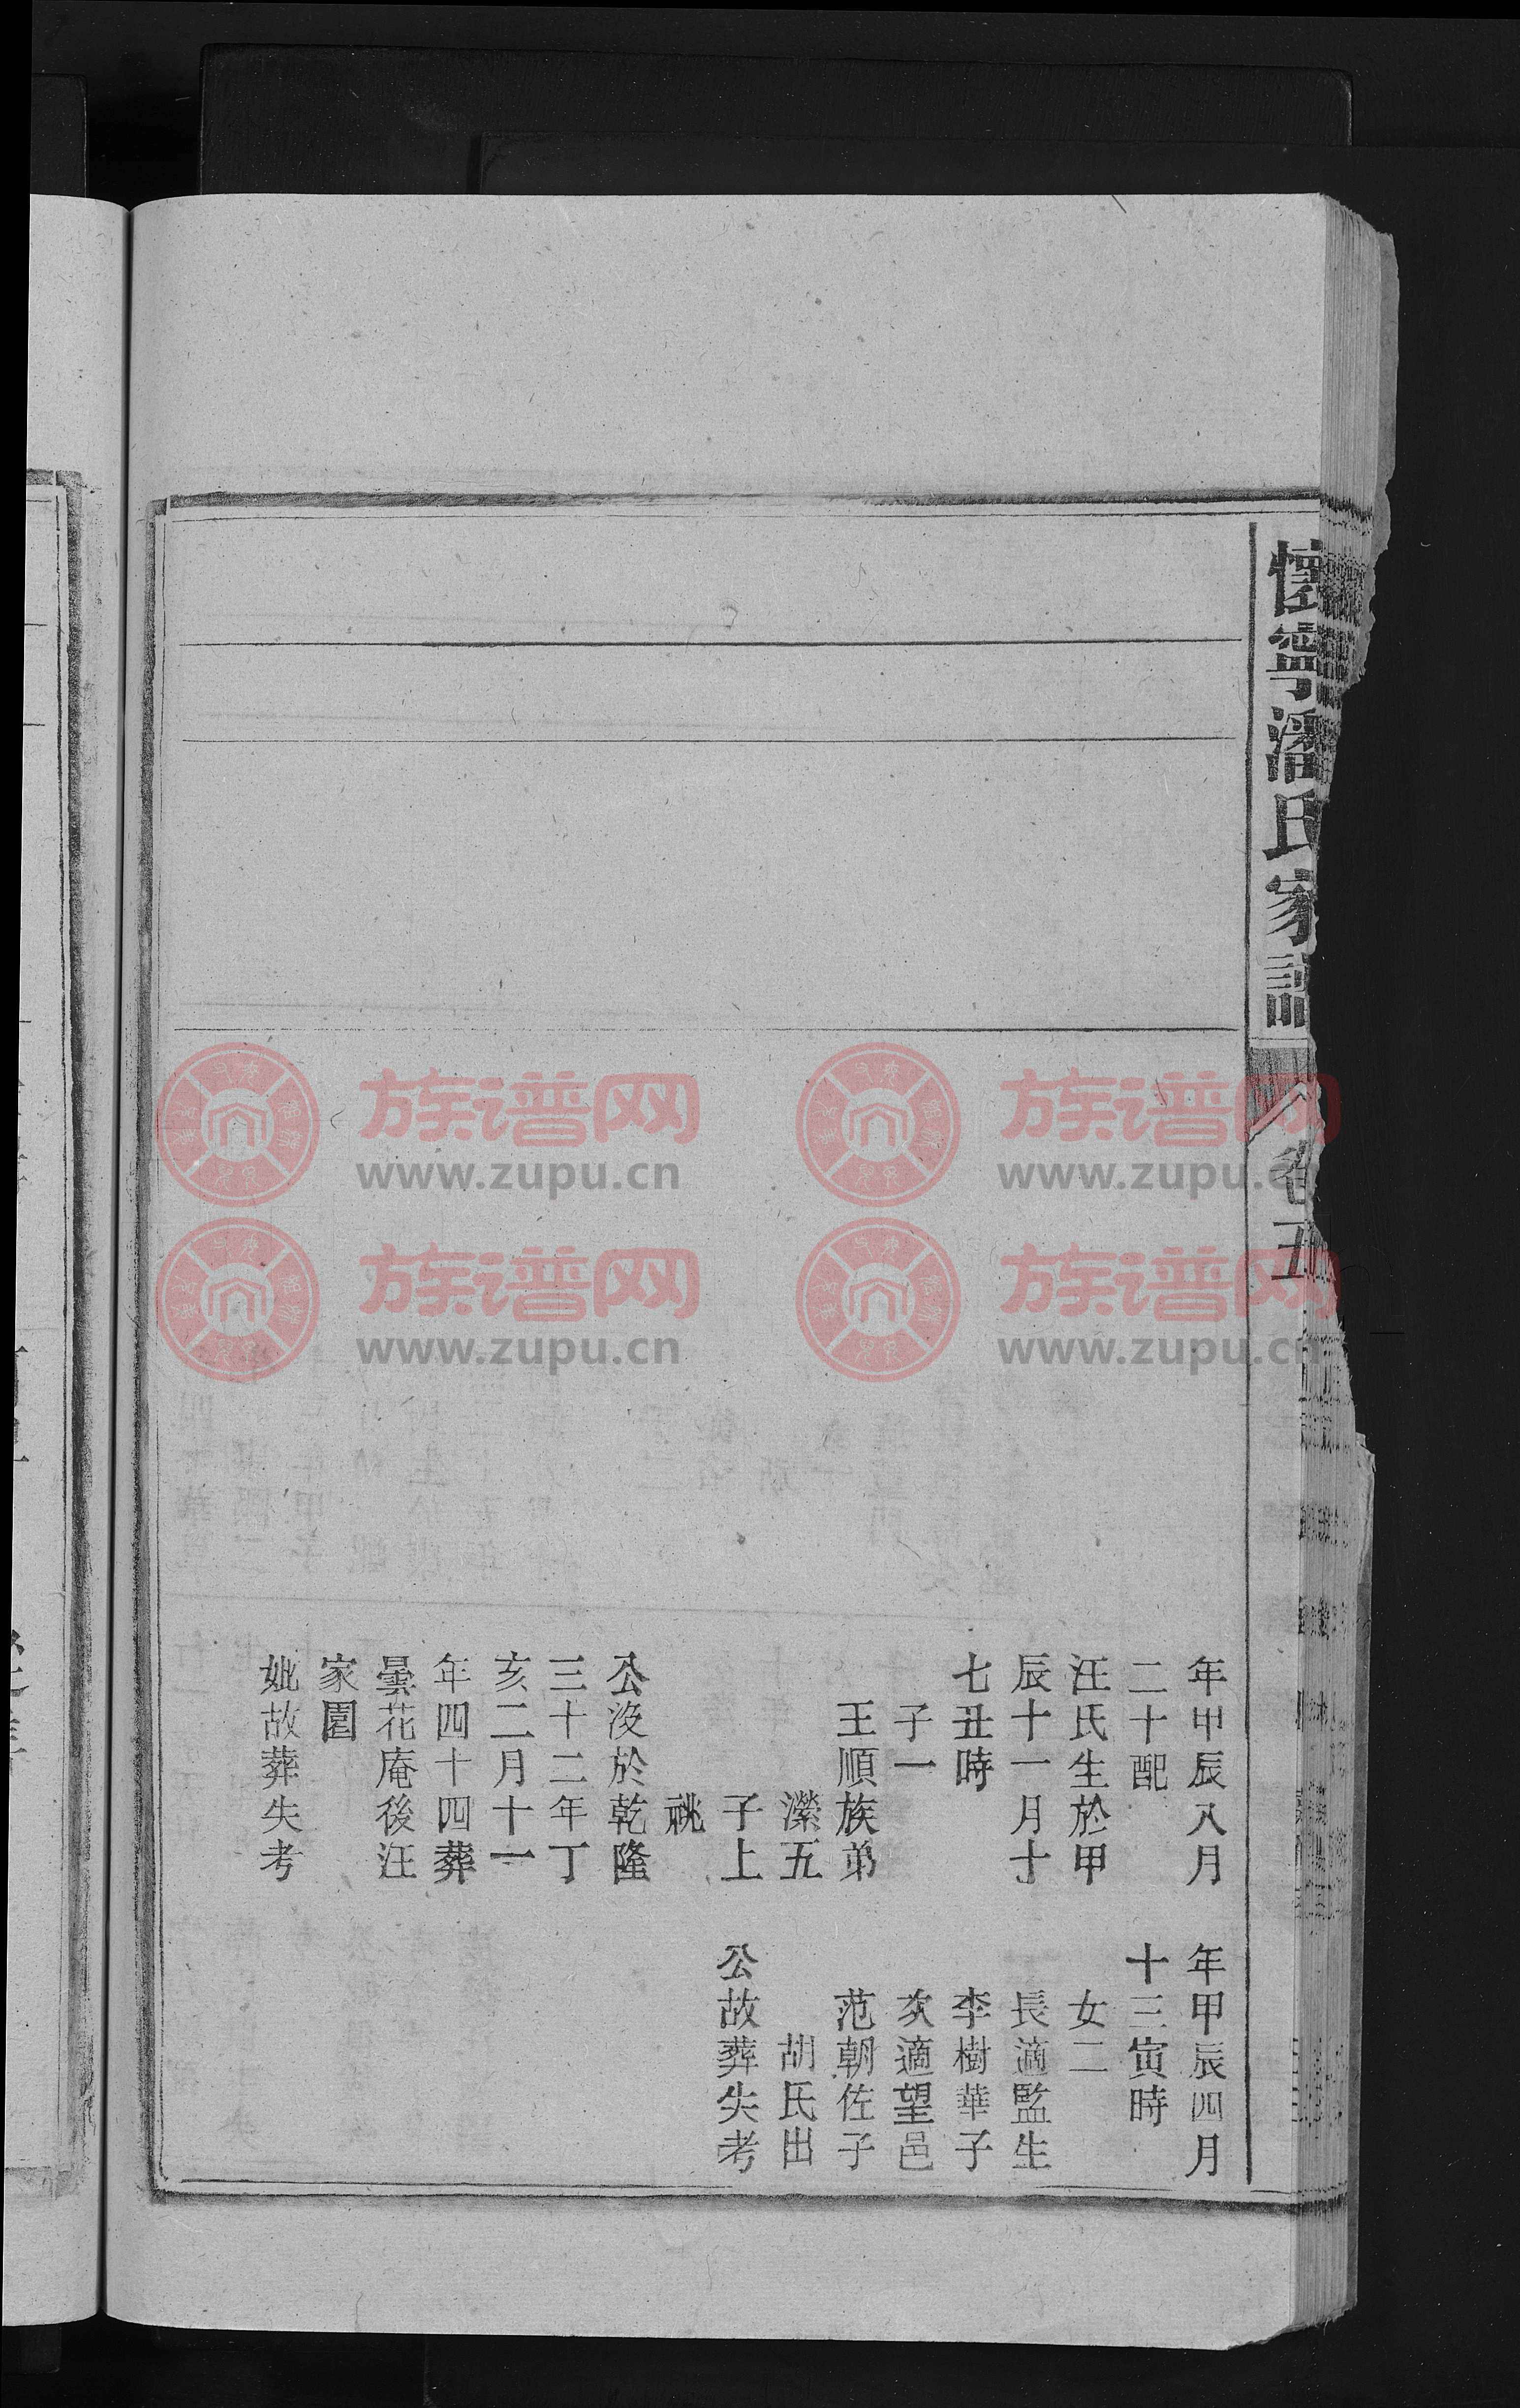 懷寧潘氏家譜
卷五
年甲辰八月
二十配
汪氏生於甲
辰十一月十
七丑時
子一
王順族弟
濴五
子上
祧
公沒於乾隆
三十二年丁
亥二月十一
年四十四葬
曇花庵後汪
家園
妣故葬失考
年甲辰四月
十三寅時
女二
長適監生
李樹華子
次適望邑
范朝佐子
胡氏出
公故葬失考
族谱网
www.zupu.cn
族谱网
www.zupu.cn
族谱网
www.zupu.cn
族谱网
www.zupu.cn